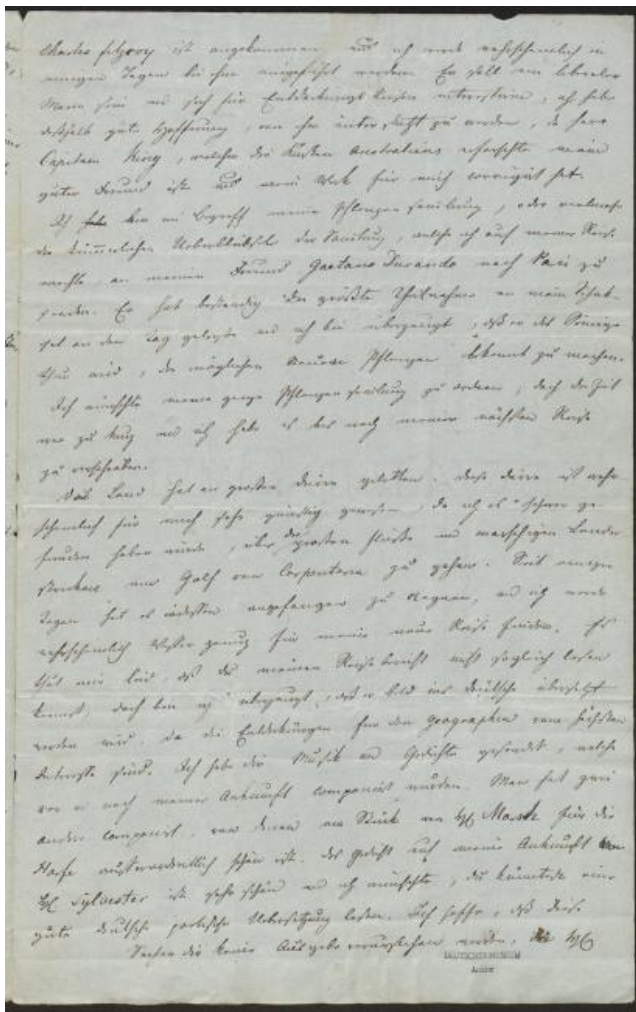 Charles fitzroy ist angekommen und ich werde wahrscheinlich in
einigen Tagen bei ihm eingeführt werden. Er soll ein liberaler
Mann sein und sich für Entdeckungsreisen interessiren, ich habe
deßhalb gute Hoffnung, von ihm unterstützt zu werden, da Herr
Capitain King, welcher die Küsten Australiens erforschte mein
guter Freund ist und mein Werk für mich corrigirt hat.
Ich bin im Begriff meine Schlangensammlung, oder vielmehr
die kümmerlichen Ueberbleibsel der Sammlung, welche ich auf meiner Reise
machte, an meinen Freund Gaetano Durando nach Paris zu
senden. Er hat beständig die größte Theilnahme an mein
an den Tag gelegt und ich bin überzeugt, daß er das
thun wird, die möglichen neuen Schlangen bekannt zu machen.
Ich wünschte meine ganze Schlangensammlung zu ordnen, doch die Zeit
war zu kurz und ich habe es bis nach meiner nächsten Reise
zu verschieben.
Das Land hat an großer dürre gelitten. diese dürre ist wahr
scheinlich für mich sehr günstig gewesen, da ich es schwer ge
funden haben würde, über die großen Flüße und Länder
strecken am Golf von Carpentaria zu gehen. Seit einigen
Tagen hat es indessen angefangen zu regnen, und ich werde
wahrscheinlich Wasser genug für meine neue Reise finden. Es
thut mir leid, daß du meinen Reisebericht nicht sogleich lesen
kannst, doch bin ich überzeugt, daß er bald ins deutsche übersetzt
werden wird, da die Entdeckungen für den geographen vom höchsten
Interesse sind. Ich habe dir Musik und Gedichte gesendet, welche
vor und nach meiner Ankunft componirt wurden. Man hat zwei
andere componirt, von denen ein Stück von Marsh für die
Harfe außerordentlich schön ist. Das Gedicht auf meine Ankunft von
Sylvester ist sehr schön und ich wünschte, du könntest eine
gute deutsche poetische Uebersetzung lesen. Ich hoffe, daß diese
Sachen dir keine Ausgabe verursachen werden, da
DEUTSCHES MUSEUM
Archiv